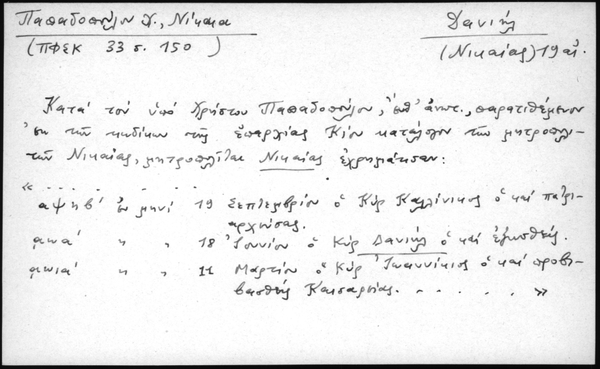 Παπαδοπούλου Χ., Νίκαια
Δανιήλ
(ΠΦΣΚ 33 σ. 150)
(Νικαίας) 19 αἰ.
Κατὰ τὸν ὑπὸ Χρήστου Παπαδοπούλου, ἔνθ' ἀνωτ., παρατιθέμενον
ἐκ τῶν κωδίκων τῆς ἐπαρχίας Κίου κατάλογον τῶν μητροπολι-
τῶν Νικαίας, μητροπολῖται Νικαίας ἐχρημάτισαν:
« . . . . . .
αψηβ' ἐν μηνὶ 19 Σεπτεμβρίου ὁ Κὺρ Καλλίνικος ὁ καὶ πατρι-
αρχεύσας.
αωιά " " 18 Ἰουνίου ὁ Κὺρ Δανιὴλ ὁ καὶ ἐξωσθείς.
αωιά " " 11 Μαρτίου ὁ Κὺρ Ἰωαννίκιος ὁ καὶ προβι-
βασθεὶς Καισαρείας. . . . . . . »